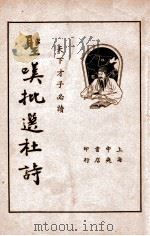 天下才子必讀
聖嘆批選杜詩
上海
中央
書店
印行
www.mtoou.info mtoou.info